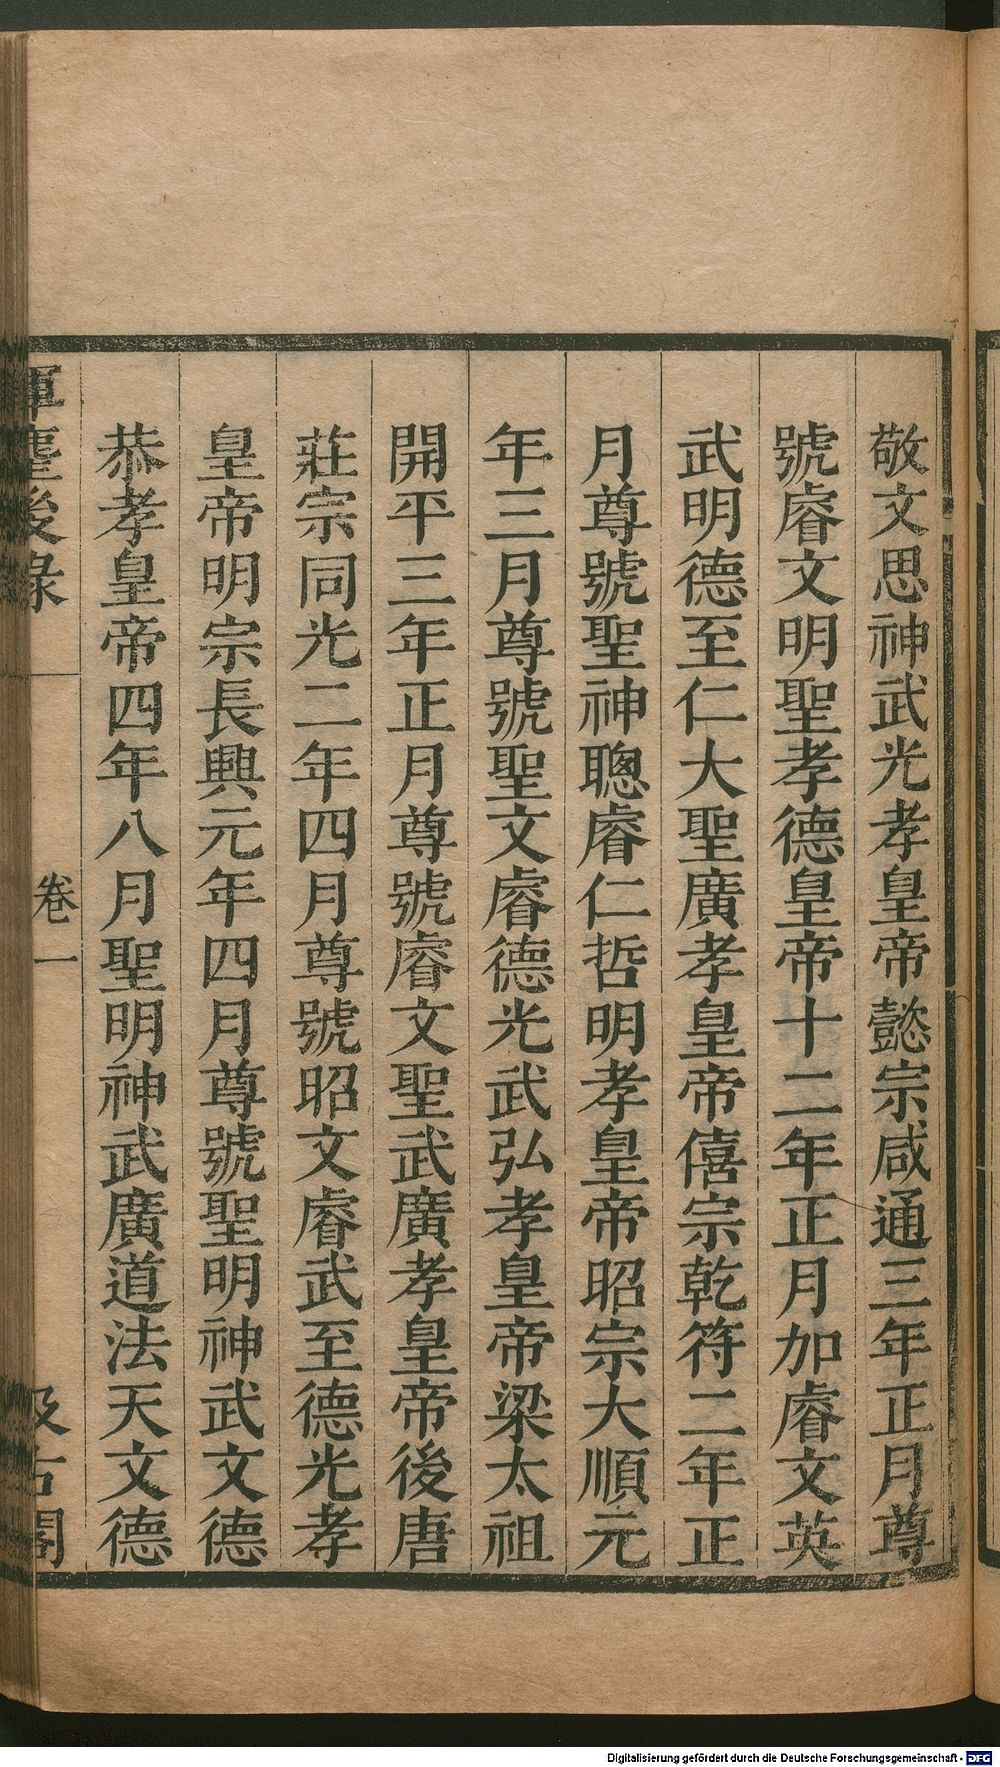 敬文思神武光孝皇帝懿宗咸通三年正月尊
號睿文明聖孝德皇帝十二年正月加睿文英
武明德至仁大聖廣孝皇帝僖宗乾符二年正
月尊號聖神聰睿仁哲明孝皇帝昭宗大順元
年三月尊號聖文睿德光武弘孝皇帝梁太祖
開平三年正月尊號睿文聖武廣孝皇帝後唐
莊宗同光二年四月尊號昭文睿武至德光孝
皇帝明宗長興元年四月尊號聖明神武文德
恭孝皇帝四年八月聖明神武廣道法天文德
揮麈後錄 卷一 汲古閣
Digitalisierung gefördert durch die Deutsche Forschungsgemeinschaft - DFG